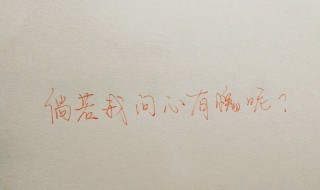 倘若我问心有愧呢？